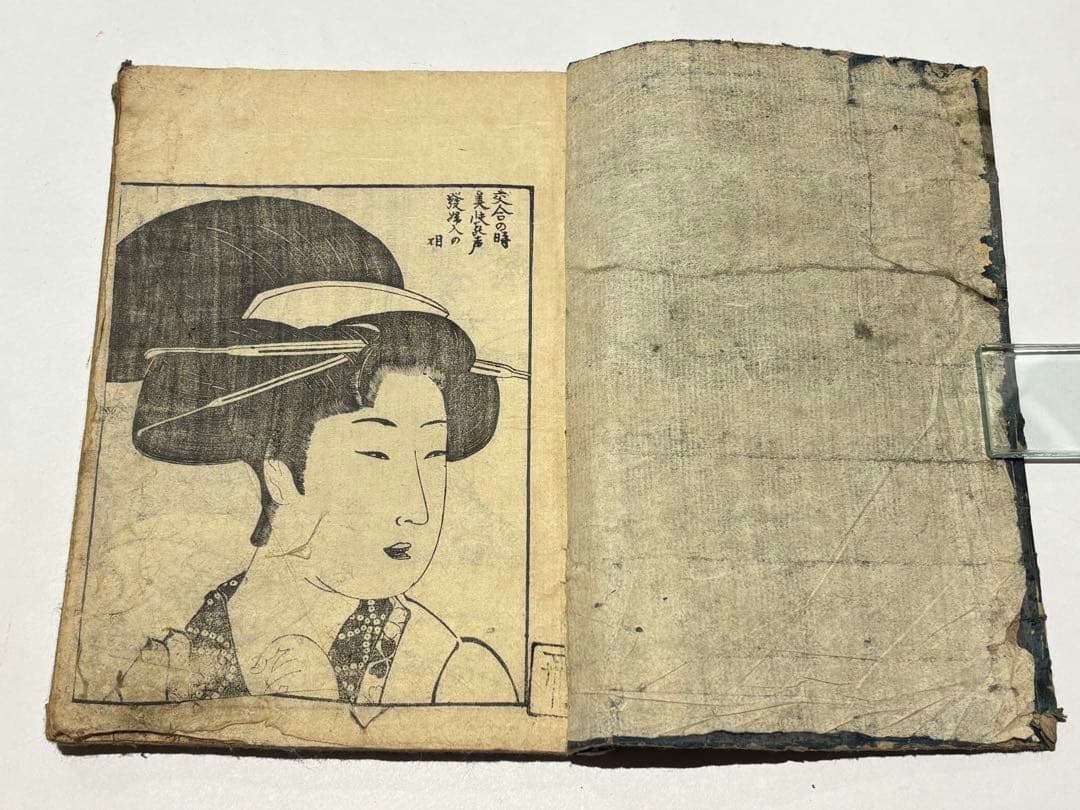 交合の時
美快の声
發婦人の
相